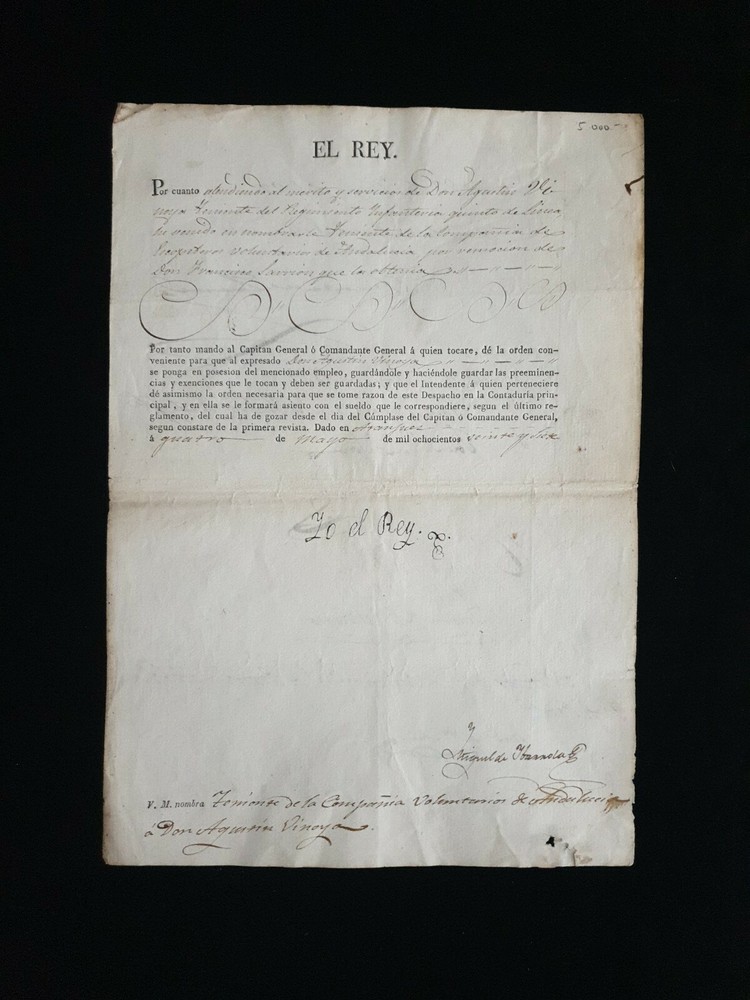 5 000
EL REY.
Por cuanto atendiendo al mérito y servicios de Don Agustin Vi-
noya Teniente del Regimiento Infanteria quinto de Linea
he venido en nombrarle Teniente de la Compañia de
Escopeteros voluntarios de Andalucia por remocion de
Don Francisco que la obtenia
Por tanto mando al Capitan General ó Comandante General á quien tocare, dé la orden con-
veniente para que al expresado Don Agustin Vinoya
se ponga en posesion del mencionado empleo, guardándole y haciéndole guardar las preeminen-
cias y exenciones que le tocan y deben ser guardadas; y que el Intendente á quien perteneciere
dé asimismo la orden necesaria para que se tome razon de este Despacho en la Contaduría prin-
cipal, y en ella se le formará asiento con el sueldo que le correspondiere, segun el último re-
glamento, del cual ha de gozar desde el dia del Cúmplase del Capitan ó Comandante General,
segun constare de la primera revista. Dado en Aranjuez
á quatro de Mayo de mil ochocientos veinte y seis
Yo el Rey.
Miguel de Ibarrola
V. M. nombra Teniente de la Compañia Voluntarios de Andalucia
á Don Agustin Vinoya.